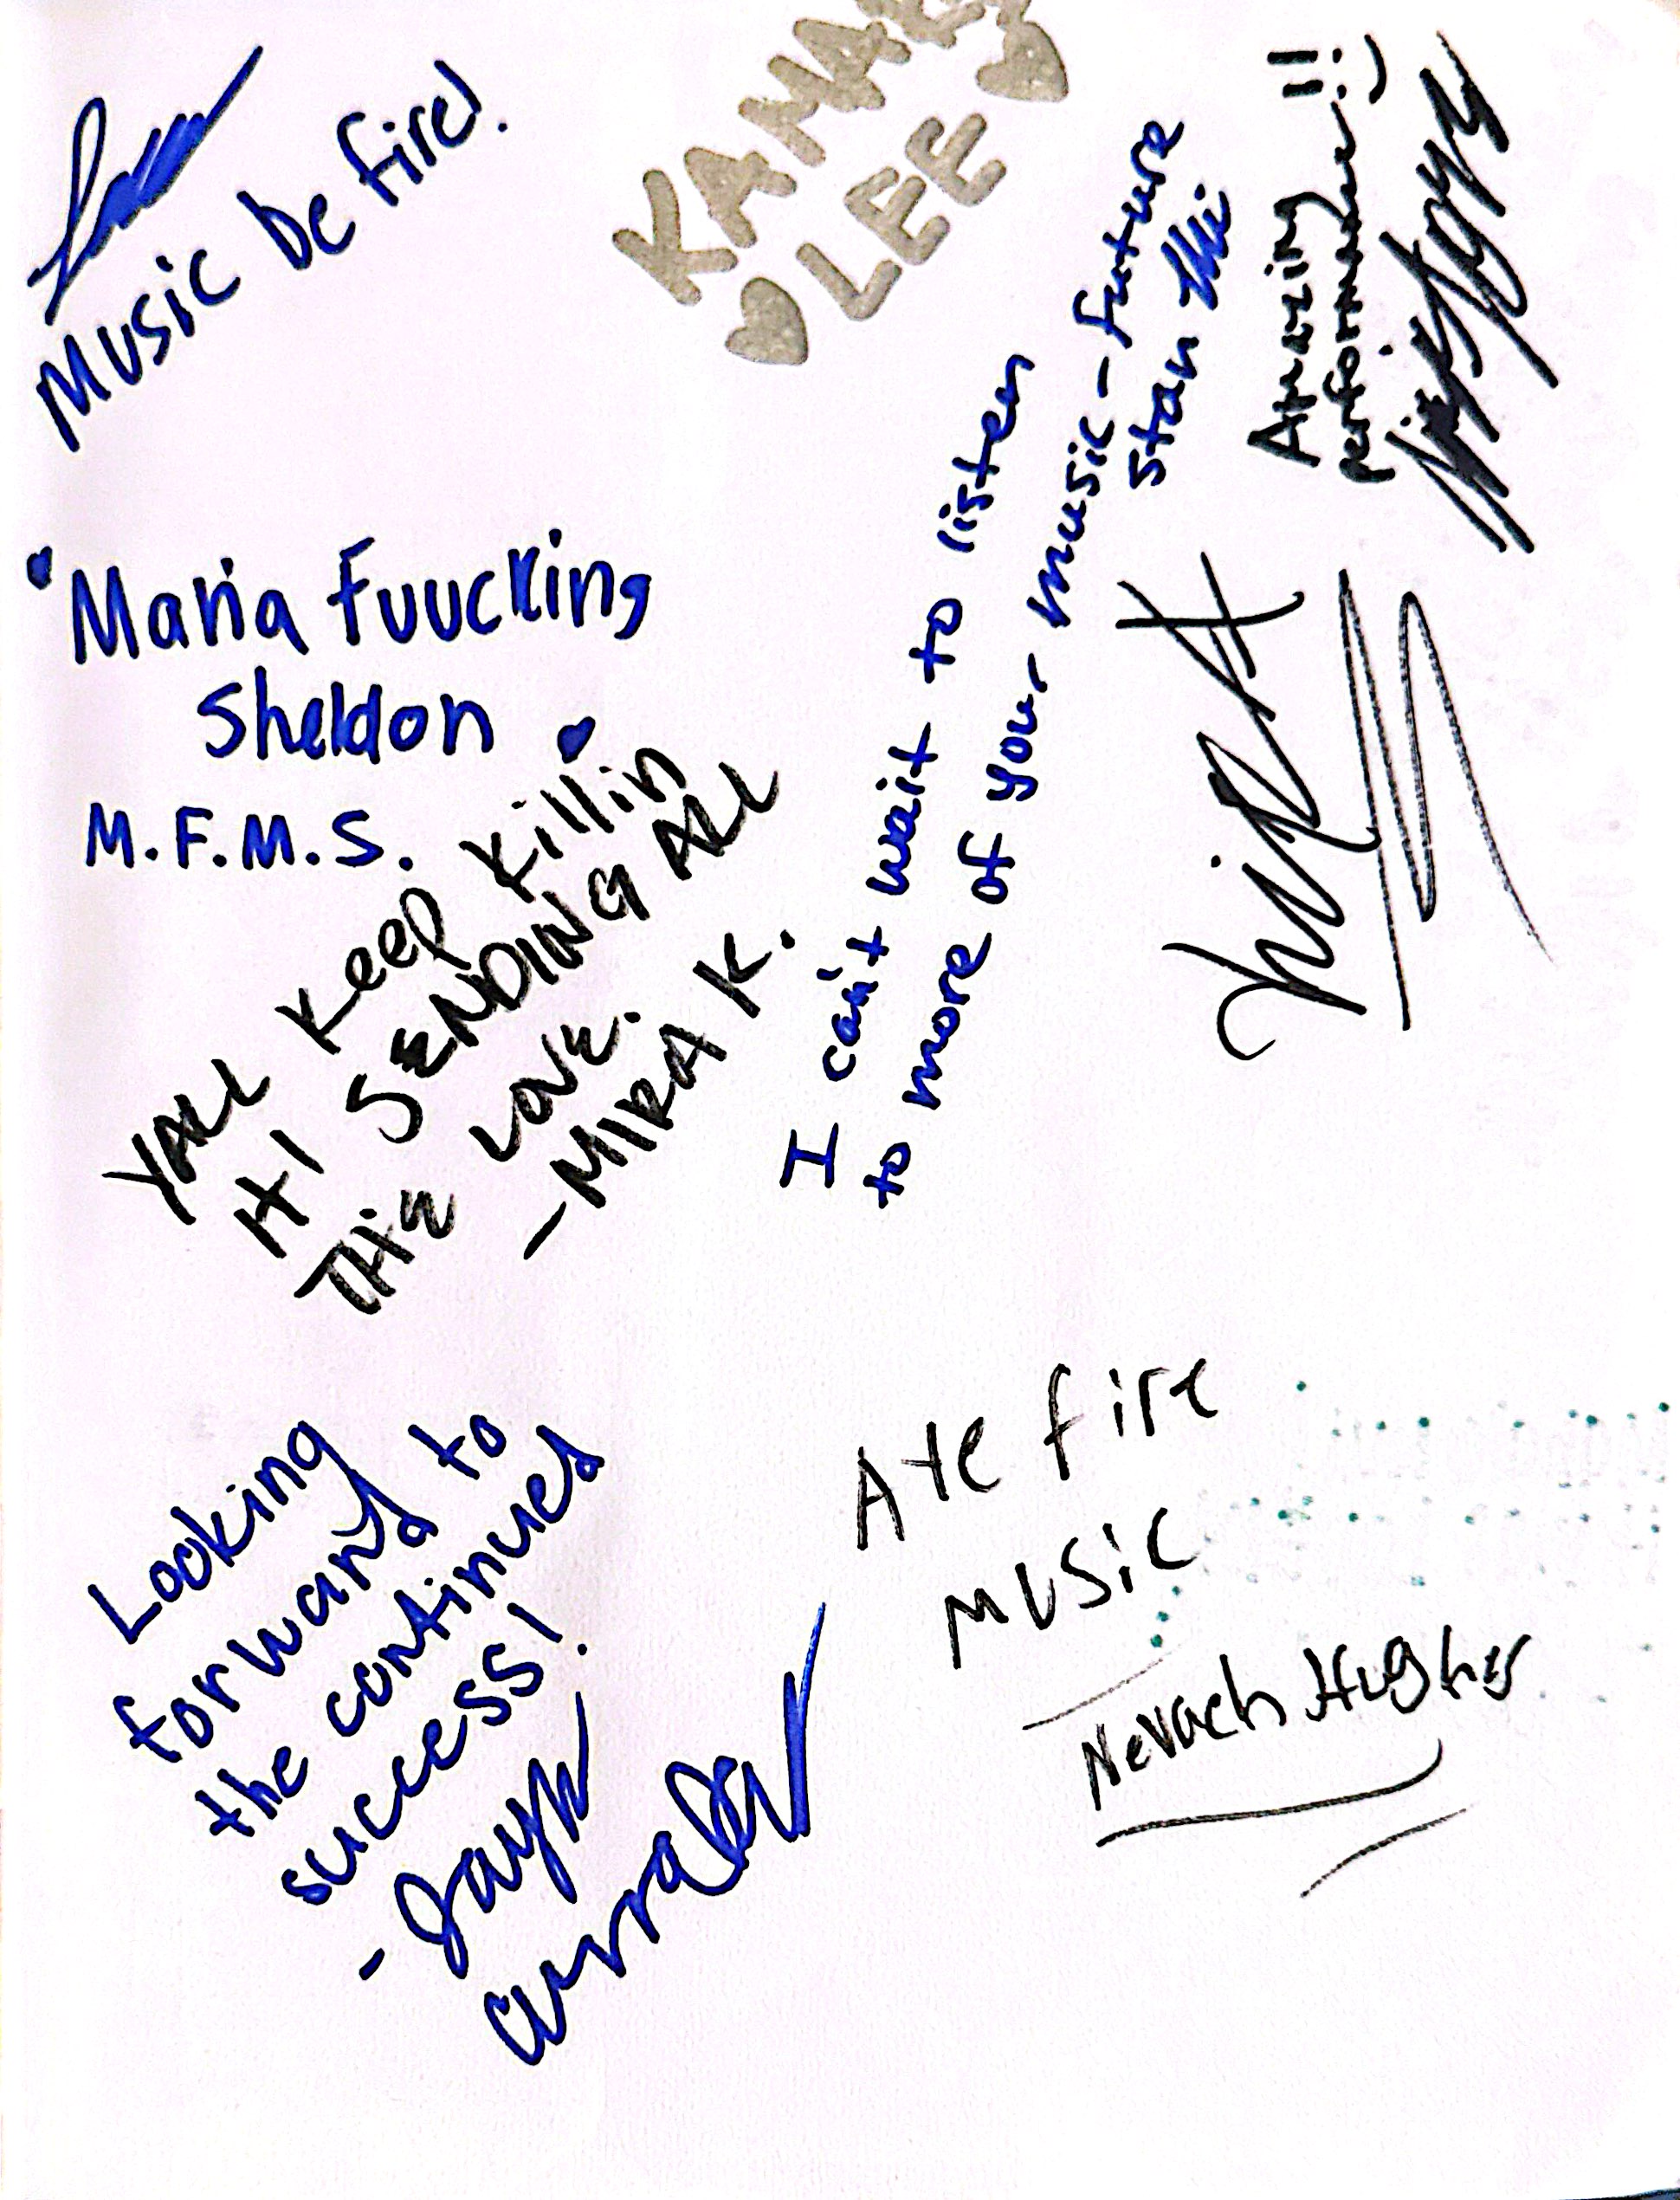 Music be fire!
LEE
Amazing
performance!!
I can't wait to listen
to more of your music - future
stan
Maria fuucking
Sheldon
M.F.M.S.
YALL Keep Killin
HI SENDING ALL
THE LOVE.
-MIRA K.
Looking
forward to
the continued
success!
Ate fire
music
Nevaeh Hughes